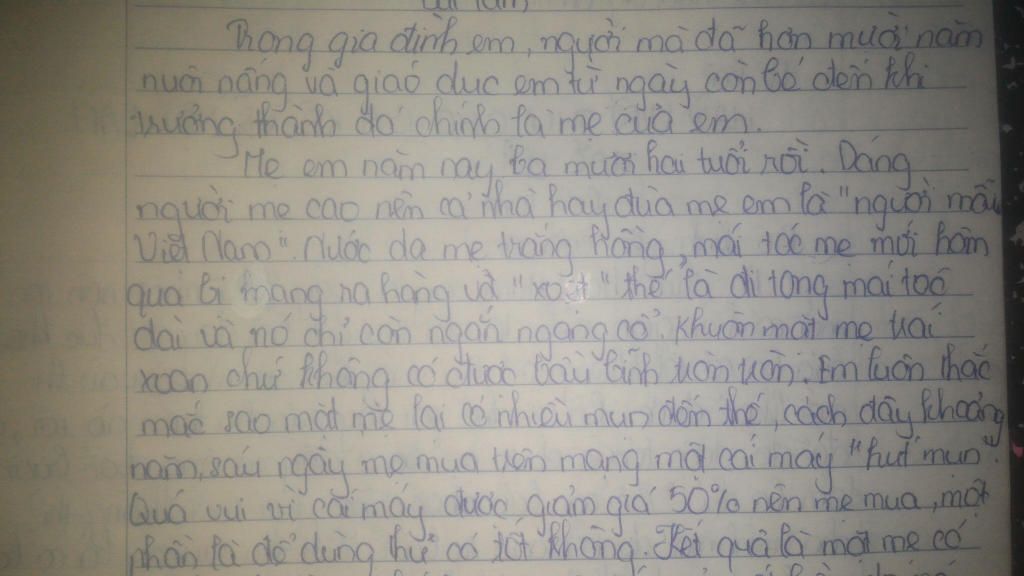 Bài làm
Trong gia đình em, người mà đã hơn mười năm
nuôi nấng và giáo dục em từ ngày còn bé đến khi
trưởng thành đó chính là mẹ của em.
Mẹ em năm nay ba mươi hai tuổi rồi. Dáng
người mẹ cao nên cả nhà hay đùa mẹ em là "người mẫu
Việt Nam". Nước da mẹ trắng hồng, mái tóc mẹ mới hôm
qua bị mang ra hàng và "xoẹt" thế là đi tong mái tóc
dài và nó chỉ còn ngắn ngang cổ. Khuôn mặt mẹ trái
xoan chứ không có được bầu bĩnh tròn tròn. Em luôn thắc
mắc sao mặt mẹ lại có nhiều mụn đến thế, cách đây khoảng
năm, sáu ngày mẹ mua trên mạng một cái máy "hút mụn".
Quá vui vì cái máy được giảm giá 50% nên mẹ mua, một
phần là để dùng thử có tốt không. Kết quả là mặt mẹ có